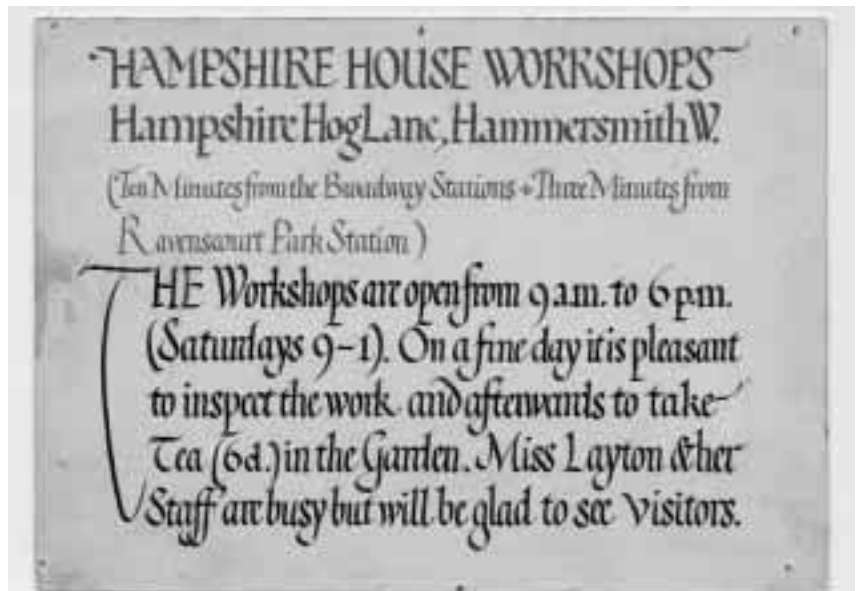 HAMPSHIRE HOUSE WORKSHOPS
Hampshire Hog Lane, Hammersmith W.
(Ten Minutes from the Broadway Stations + Three Minutes from
Ravenscourt Park Station)
THE Workshops are open from 9 a.m. to 6 p.m.
(Saturdays 9-1). On a fine day it is pleasant
to inspect the work and afterwards to take
Tea (6d.) in the Garden. Miss Layton & her
Staff are busy but will be glad to see visitors.